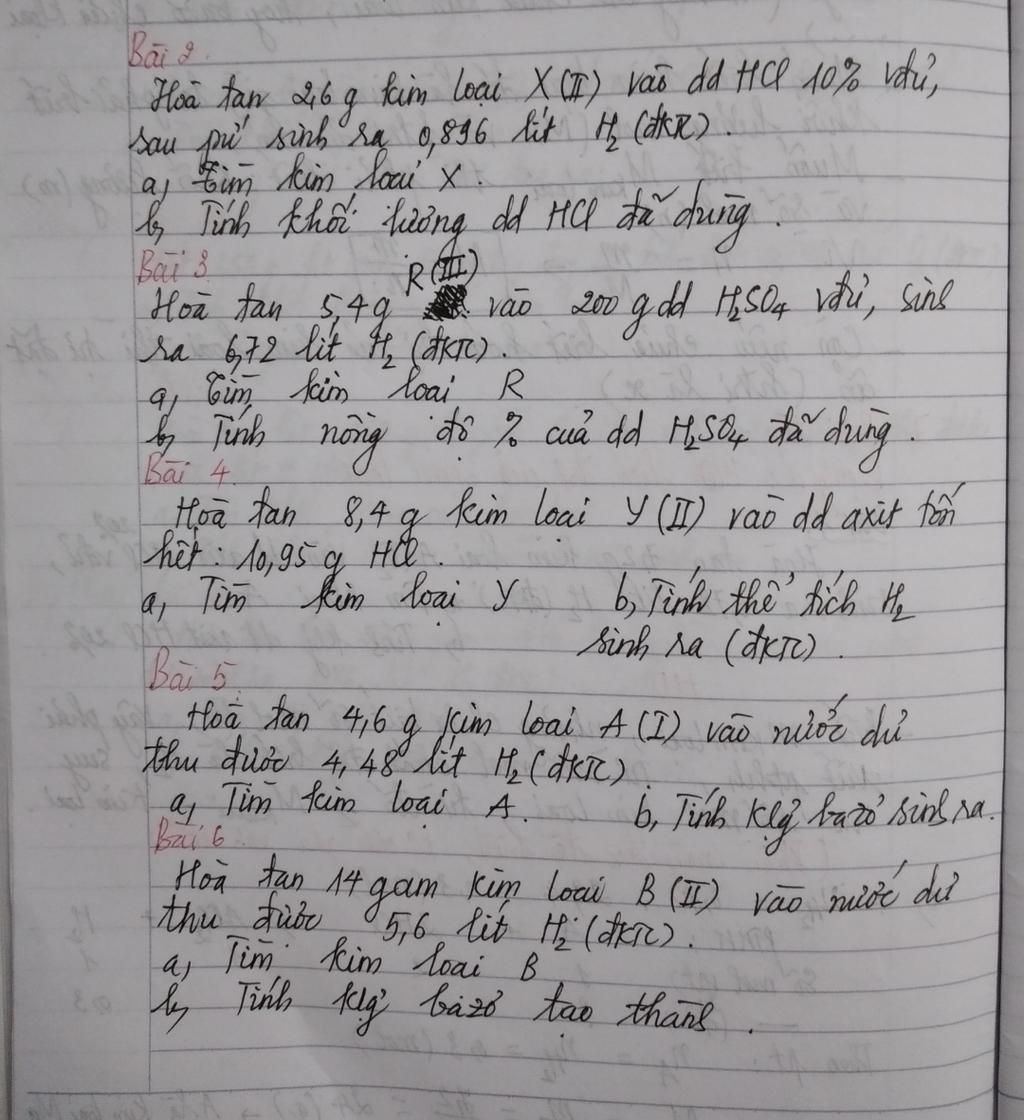 Bài 2
Hoà tan 2,6 g kim loại X (II) vào dd HCl 10% vđủ,
sau pứ sinh ra 0,896 lít H₂ (đktc).
a, Tìm kim loại X.
b, Tính khối lượng dd HCl đã dùng.
Bài 3
R (III)
Hoà tan 5,4 g vào 200 g dd H₂SO₄ vđủ, sinh
ra 6,72 lít H₂ (đktc).
a, Tìm kim loại R
b, Tính nồng độ % của dd H₂SO₄ đã dùng.
Bài 4
Hoà tan 8,4 g kim loại Y (II) vào dd axit tốn
hết: 10,95 g HCl.
a, Tìm kim loại Y b, Tính thể tích H₂
sinh ra (đktc).
Bài 5
Hoà tan 4,6 g kim loại A (I) vào nước dư
thu được 4,48 lít H₂ (đktc)
a, Tìm kim loại A. b, Tính klg bazơ sinh ra.
Bài 6
Hoà tan 14 gam kim loại B (II) vào nước dư
thu được 5,6 lít H₂ (đktc).
a, Tìm kim loại B
b, Tính klg bazơ tạo thành.